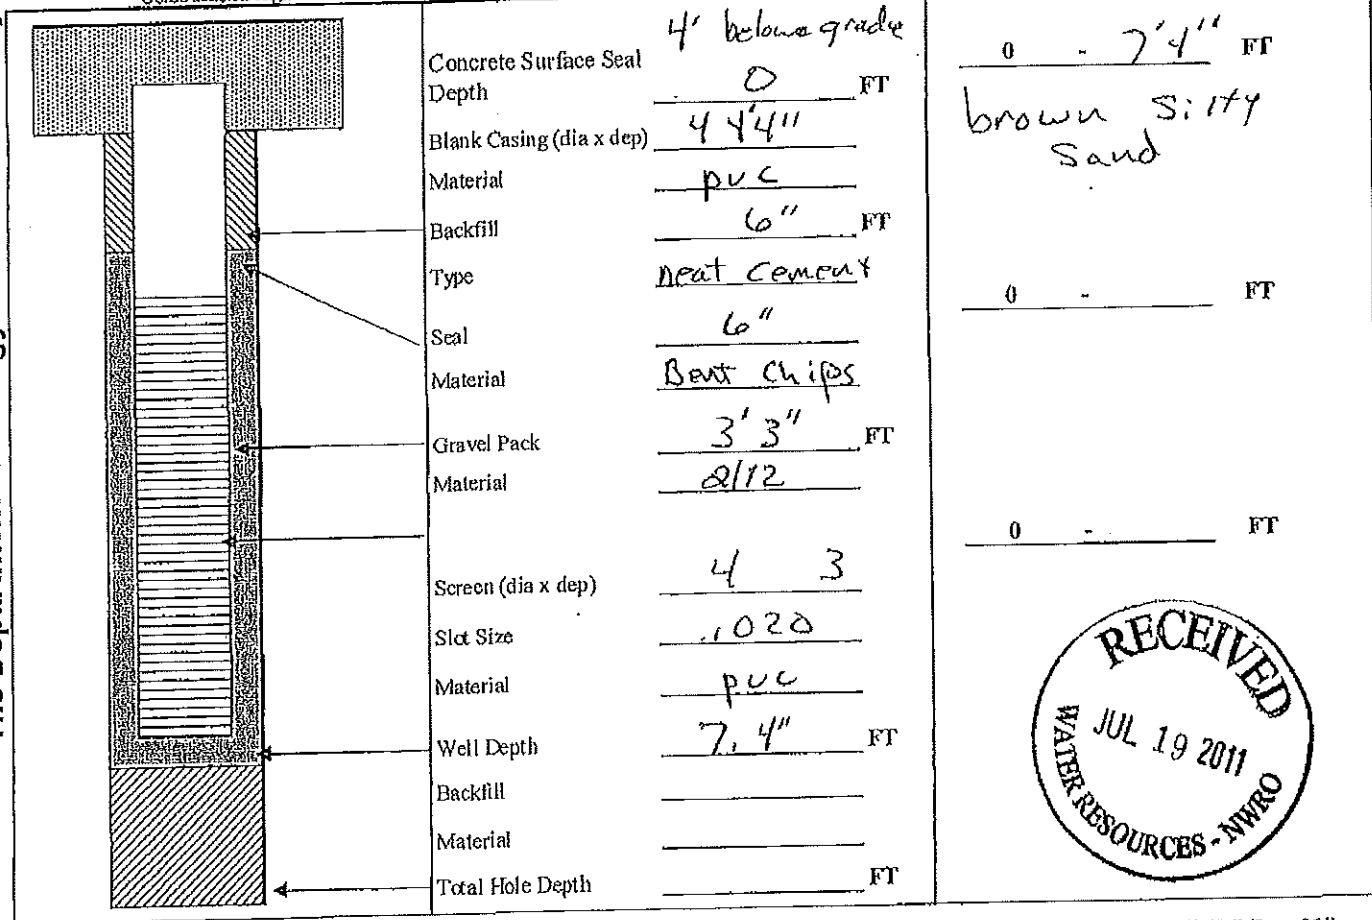 4' below grade
Concrete Surface Seal
Depth 0 FT
Blank Casing (dia x dep) 4 4'4"
Material pvc
Backfill 6" FT
Type neat cement
Seal 6"
Material Bent Chips
Gravel Pack 3' 3" FT
Material 2/12
Screen (dia x dep) 4 3
Slot Size .020
Material pvc
Well Depth 7, 4" FT
Backfill
Material
Total Hole Depth FT
0 - 7'4" FT
brown silty
Sand
0 - FT
0 - FT
RECEIVED
JUL 19 2011
WATER RESOURCES - NWRO